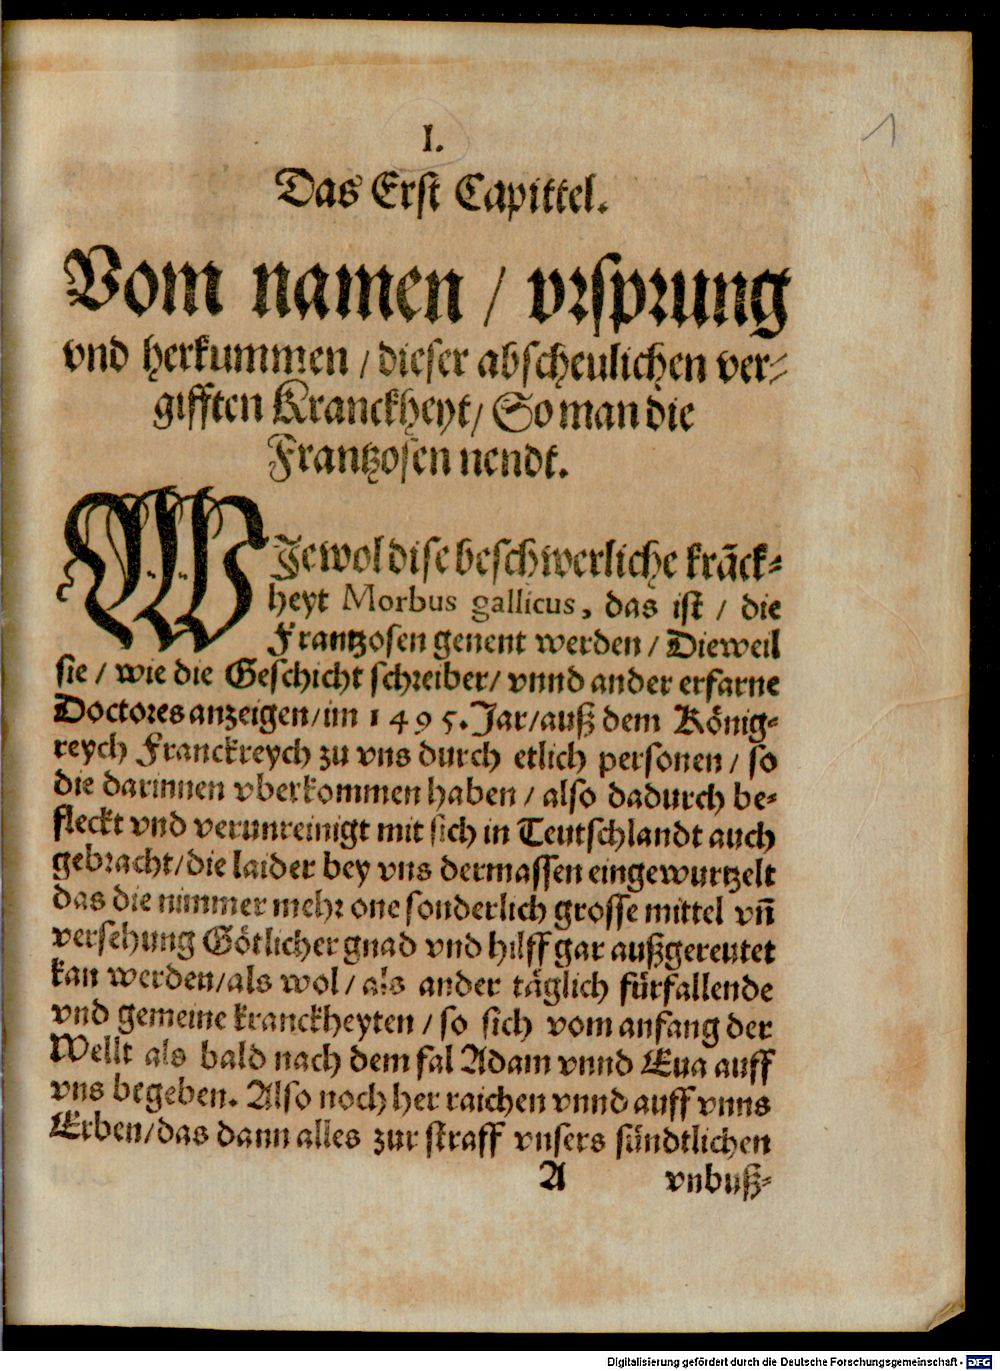 I.
1
Das Erst Capittel.
Vom namen / vrsprung
vnd herkummen / dieser abscheulichen ver-
gifften Kranckheyt / So man die
Frantzosen nendt.
WJewol dise beschwerliche krãck-
heyt Morbus gallicus, das ist / die
Frantzosen genent werden / Dieweil
sie / wie die Geschicht schreiber / vnnd ander erfarne
Doctores anzeigen / im 1495. Jar / auß dem König-
reych Franckreych zu vns durch etlich personen / so
die darinnen vberkommen haben / also dadurch be-
fleckt vnd verunreinigt mit sich in Teutschlandt auch
gebracht / die laider bey vns dermassen eingewurtzelt
das die nimmer mehr one sonderlich grosse mittel vñ
versehung Götlicher gnad vnd hilff gar außgereutet
kan werden / als wol / als ander täglich fürfallende
vnd gemeine kranckheyten / so sich vom anfang der
Wellt als bald nach dem fal Adam vnnd Eua auff
vns begeben. Also noch her raichen vnnd auff vnns
Erben / das dann alles zur straff vnsers sündtlichen
A vnbuß-
Digitalisierung gefördert durch die Deutsche Forschungsgemeinschaft - DFG